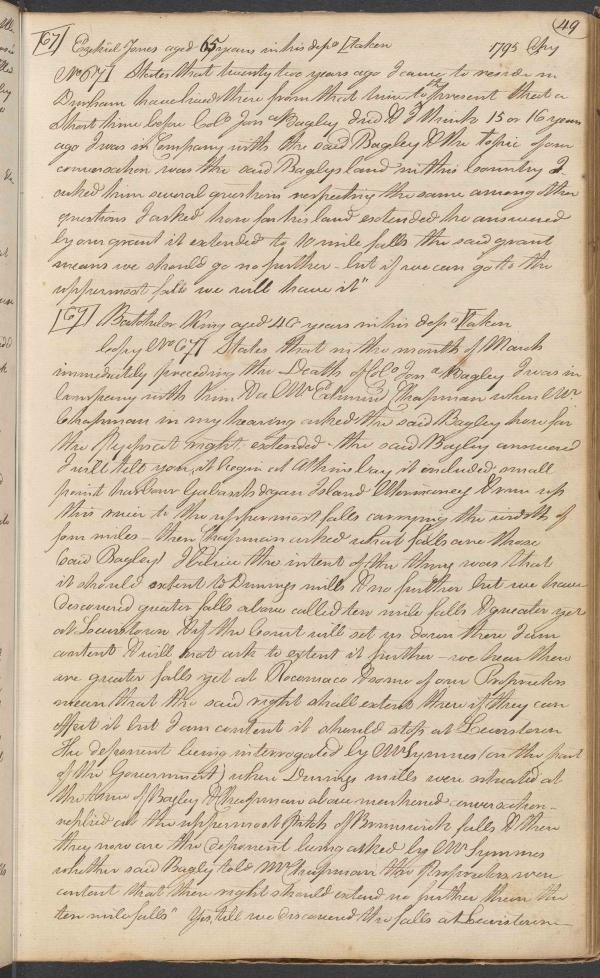 49
[67] Ezekiel Jones aged 65 years in his depo taken 1795 Cpy
No 67] States that twenty two years ago I came to reside in
Durham have lived there from that time to the present that a
Short time before Colo Jona Bagley died I think 15 or 16 years
ago I was in Company with the said Bagley & the topic of our
conversation was the said Bagleys land in this Country I
asked him several questions respecting the same among other
questions I asked how far his land extended he answered
by our grant it extended to 10 mile falls the said grant
means we should go no further - but if we can go to the
uppermost falls we will have it"
[69] Batchelor Ring aged 40 years in his depo taken
Copy No 67] States that in the month of March
immediately preceding the Death of Colo Jona Bagley I was in
Company with him & a Mr Edmund Chapman when Mr
Chapman in my hearing asked the said Bagley how far
the right extended - the said Bagley answered
I will tell you, it begin at Atkins bay it included small
point harbour Island & run up
this river to the uppermost falls carrying the width of
four miles - then Chapman asked what falls are those
(said Bagley) I believe the intent of the thing was that
it should extent to Dunnings mills & no further but we have
discovered greater falls above called ten mile falls & greater yet
at Lewistown & if the Court will set us down there I am
content & will not ask to extent it further - we hear there
are greater falls yet at Rocomaco & some of our Proprietors
mean that the said right shall extent there if they can
effect it but I am content it should stop at Lewistown
The deponent being interrogated by Mr Symmes (on the part
of the Government) where Dunnings mills were situated at
the time of Bagley & Chapman above mentioned conversation -
replied at the uppermost pitch of Brunswick falls & there
they now are the deponent being asked by Mr Symmes
whether said Bagley told Mr Chapman the Proprietors were
content that their right should extend no further than the
ten mile falls" Yes, till we discovered the falls at Lewistown -